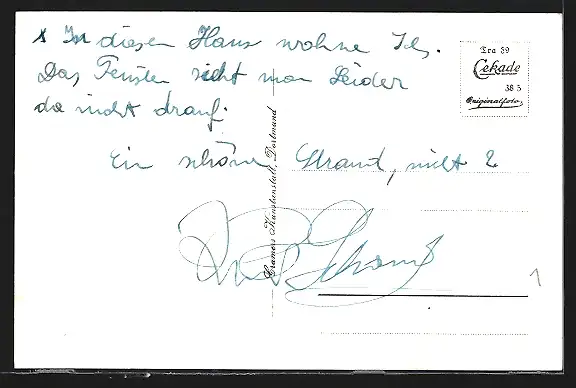 x In diesen Haus wohne Ich.
Das Fenster sieht man Leider
da nicht drauf.
Ein schöne Strand, nicht?
Era 39
Cekade
38 5
Originalfoto
Cramers Kunstanstalt, Dortmund
1